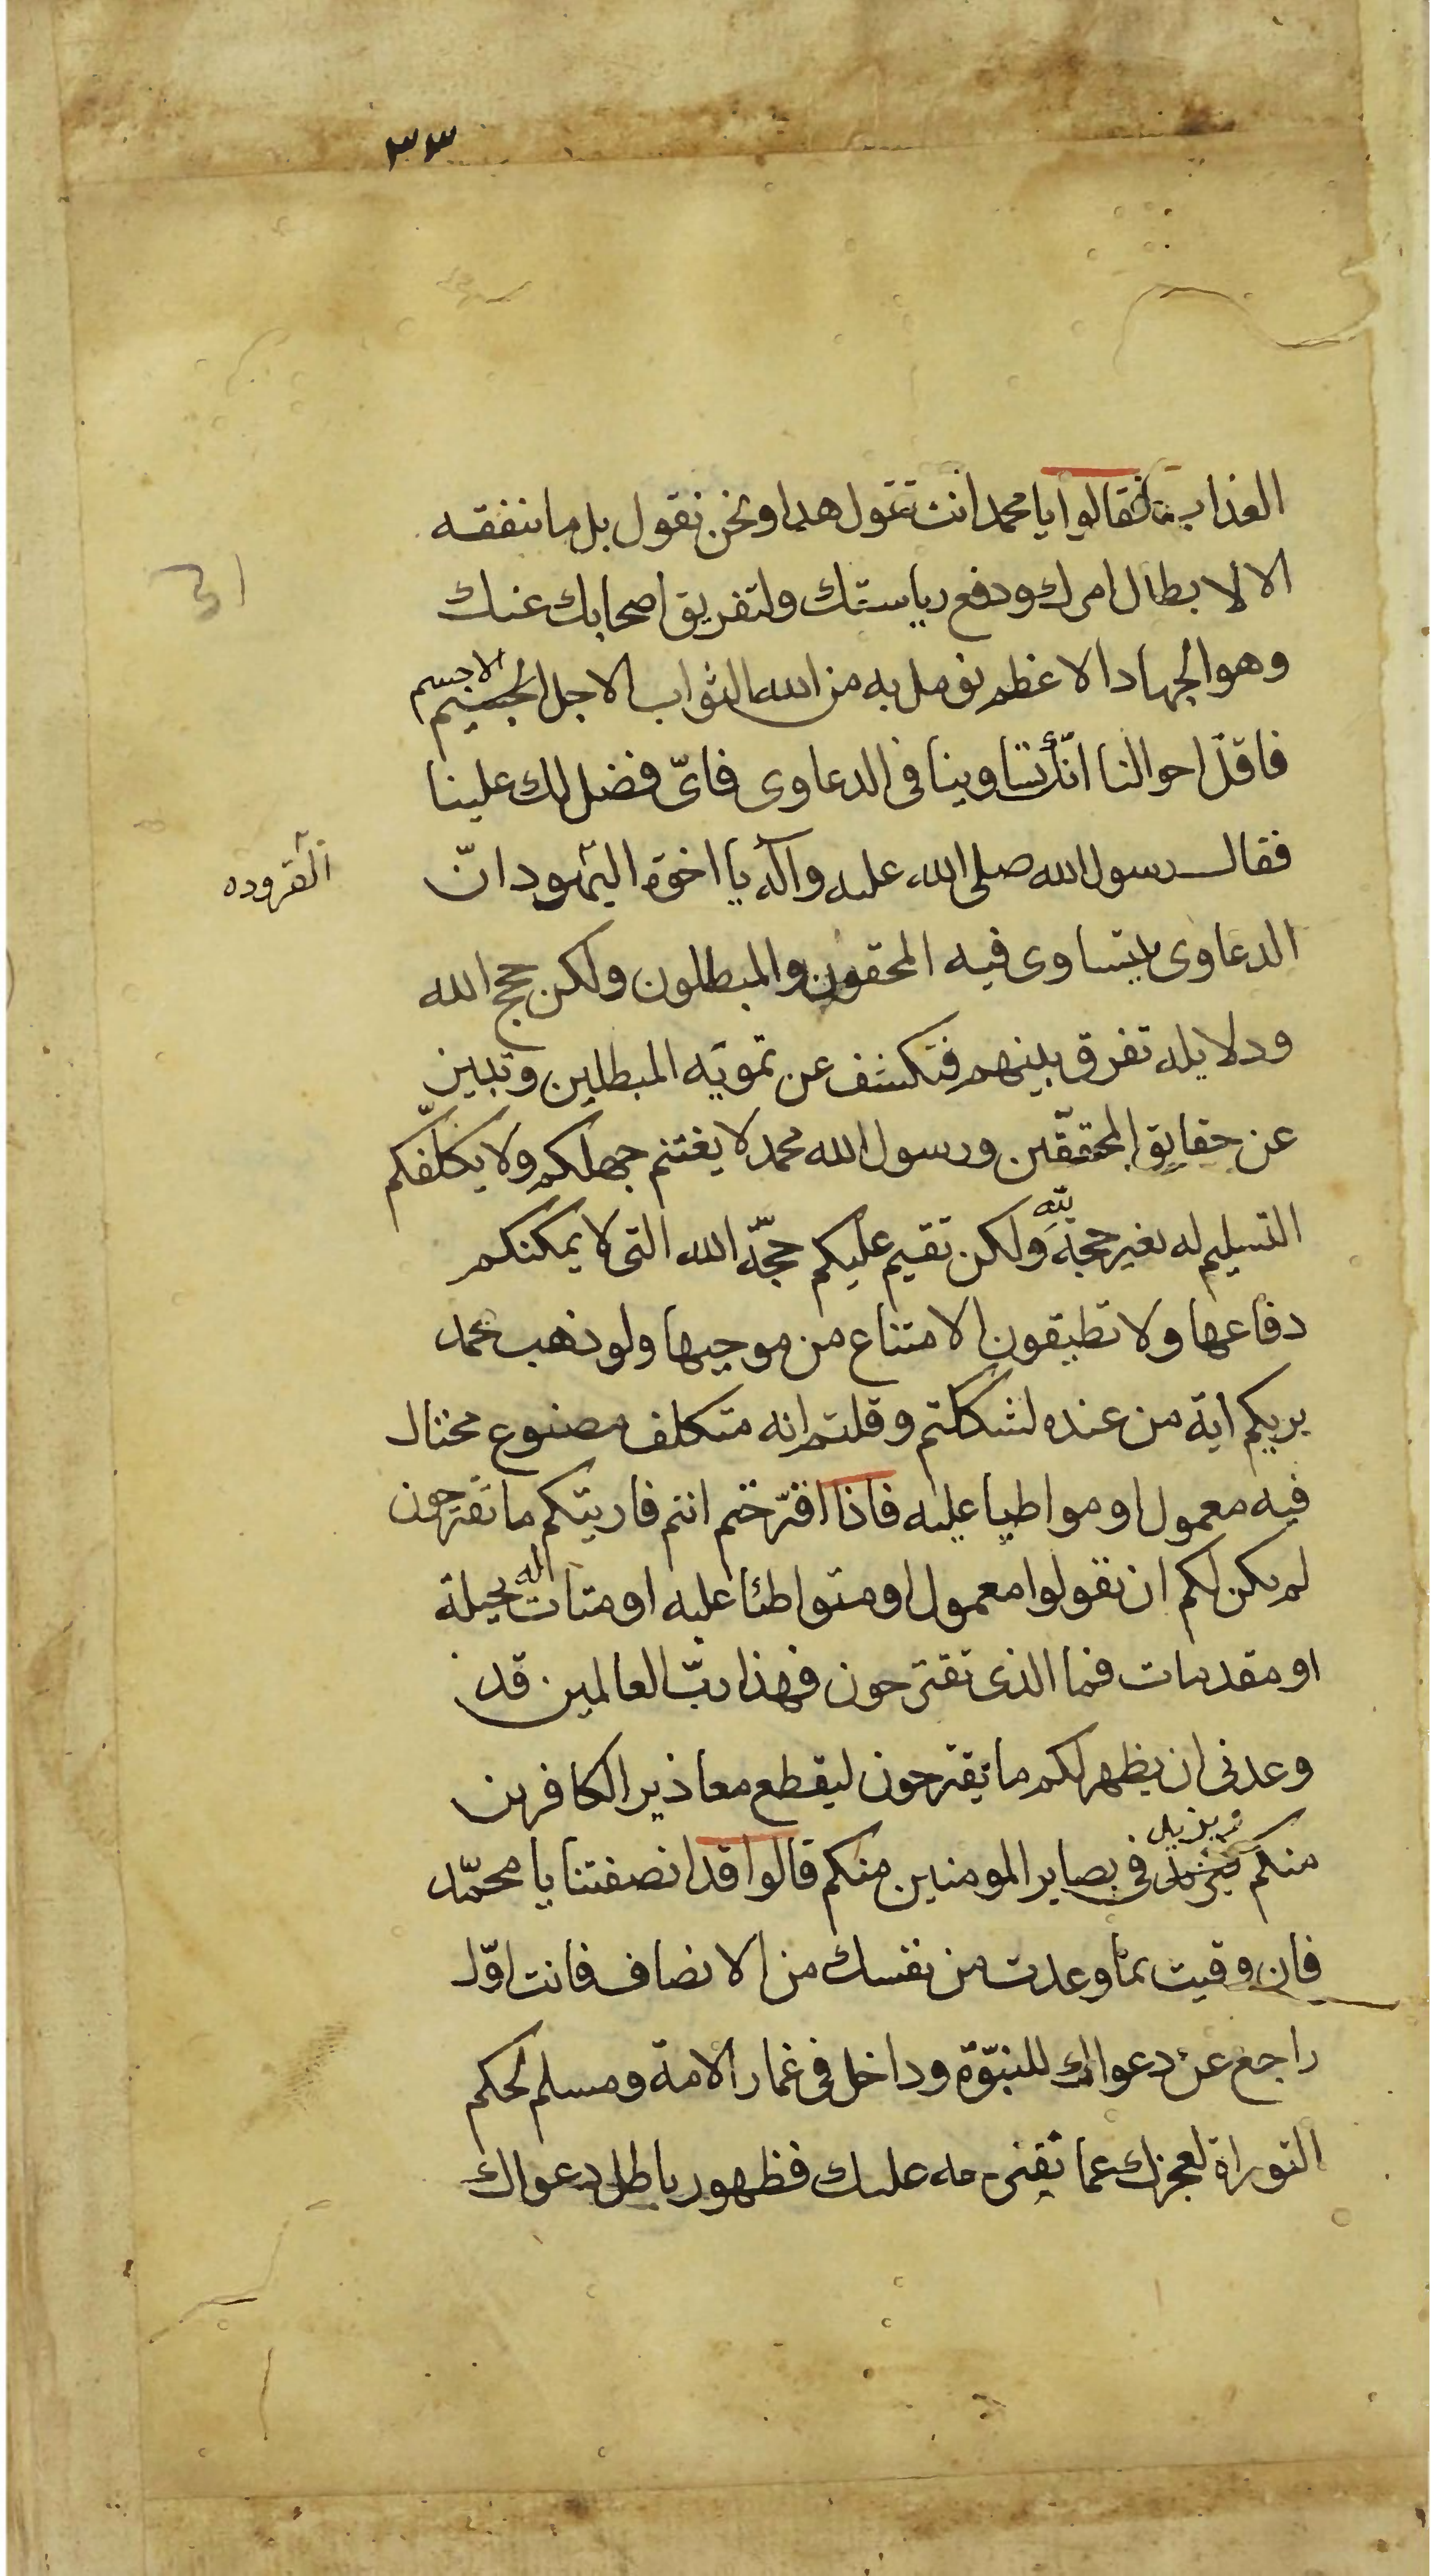 ٣٣
العذاب فقالوا يا محمد انت تقول هذا ونحن نقول بل ما ننفقه
الا لابطال امرك ودفع رياستك ولتفريق اصحابك عنك
وهو الجهاد الاعظم نومل به من الله الثواب الاجل الجسيم الاجسم
فاقل احوالنا انّك تساوينا فى الدعاوى فاىّ فضل لك علينا
فقال رسول الله صلى الله عليه وآله يا اخوة اليهود انّ
القروده
الدعاوى يتساوى فيه المحقون والمبطلون ولكن حجج الله
ودلايله تفرق بينهم فتكشف عن تمويه المبطلين وتبين
عن حقايق المحققّين ورسول الله محمد لا يغتنم جهلكم ولا يكلّفكم
التسليم له بغير حجة لله ولكن تقيم عليكم حجّة الله التى لا يمكنكم
دفاعها ولا تطيقون الامتناع من موجبها ولو ذهب محمد
يريكم اية من عنده لشككتم وقلتم انه متكلف مصنوع محتال
فيه معمول او مواطيا عليه فاذا اقترحتم انتم فاريتكم ما تقترحون
لم يكن لكم ان تقولوا معمول او متواطئا عليه او متات اله بحيلة
او مقدمات فما الذى تقترحون فهذا ربّ العالمين قد
وعدنى ان يظهر لكم ما تقترحون ليقطع معاذير الكافرين
منكم ويزيد فى بصاير المومنين منكم قالوا قد انصفتنا يا محمّد
فان وفيت بما وعدت من نفسك من الانصاف فانت اوّل
راجع عن دعواك للنبوّة وداخل فى غمار الامة ومسلم لحكم
التوراة لعجزك عما نقترحه عليك فظهور باطل دعواك